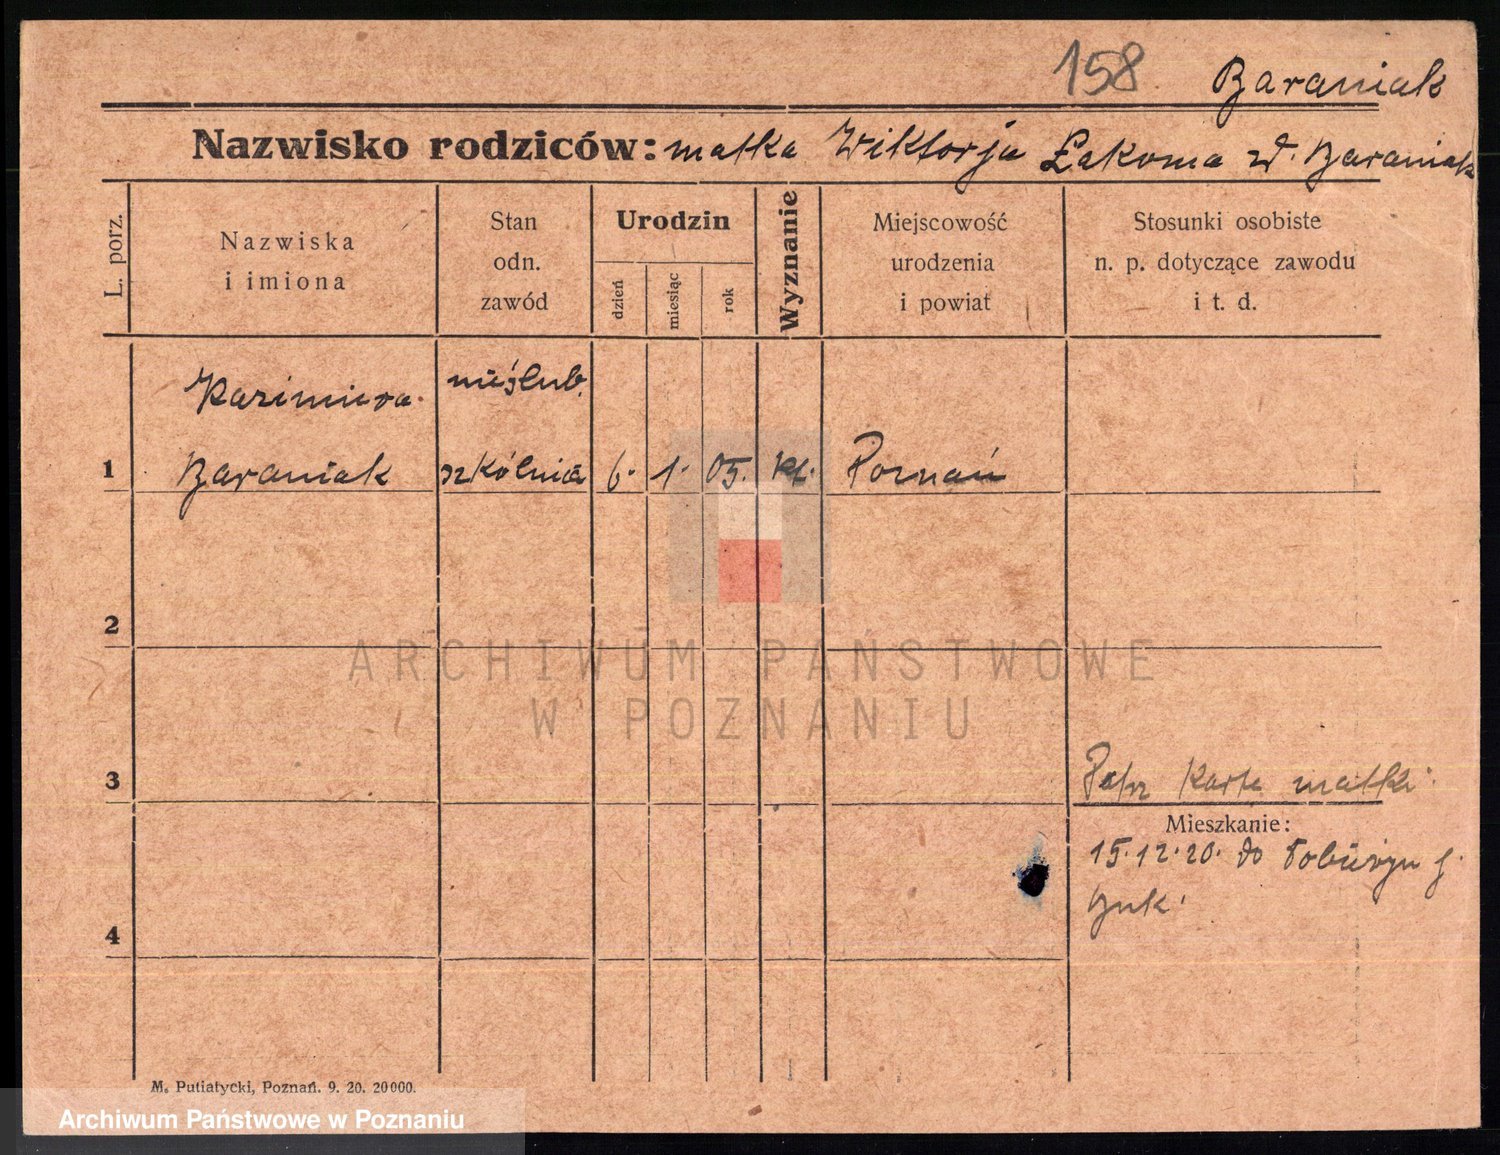 158 Baraniak
Nazwisko rodziców: matka Wiktorja Łakoma zd. Baraniak
L. porz.
Nazwiska
i imiona
Stan
odn.
zawód
Urodzin
dzień
miesiąc
rok
Wyznanie
Miejscowość
urodzenia
i powiat
Stosunki osobiste
n. p. dotyczące zawodu
i t. d.
Kazimiera nieślub.
1 Baraniak szkólnica 6. 1. 05. kt. Poznań
2
ARCHIWUM PAŃSTWOWE
W POZNANIU
3
Patrz Karta matki.
Mieszkanie:
15.12.20. do
Buk.
4
M. Putiatycki, Poznań. 9. 20. 20000.
Archiwum Państwowe w Poznaniu